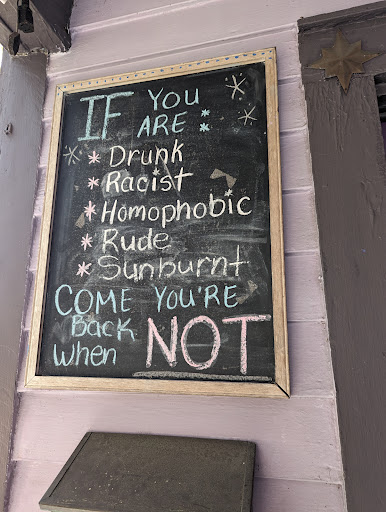 IF YOU
ARE:
* Drunk
* Racist
* Homophobic
* Rude
* Sunburnt
COME YOU'RE
Back
when NOT